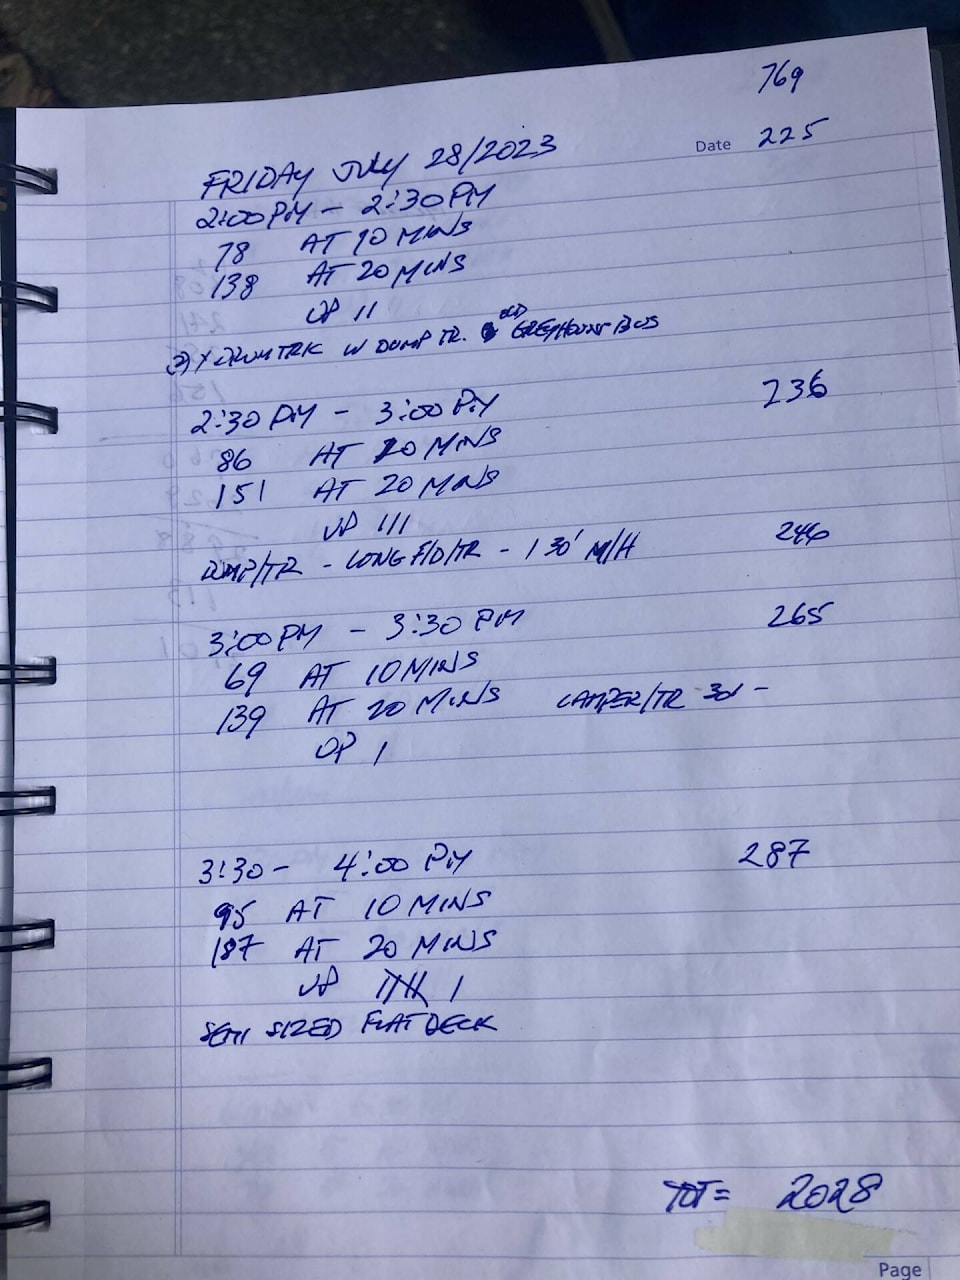 769
Date 225
FRIDAY JULY 28/2023
2:00 PM - 2:30 PM
78 AT 10 MINS
138 AT 20 MINS
UP 11
W DUMP TR. OLD GREYHOUND BUS
2:30 PM - 3:00 PM 236
86 AT 10 MINS
151 AT 20 MINS
UP III
DUMP/TR - LONG F/D/TR - 1 30' M/H 246
3:00 PM - 3:30 PM 265
69 AT 10 MINS
139 AT 20 MINS CAMPER/TR 30' -
UP 1
3:30 - 4:00 PM 287
95 AT 10 MINS
187 AT 20 MINS
UP 1
SEMI SIZED FLAT DECK
TOT = 2028
Page